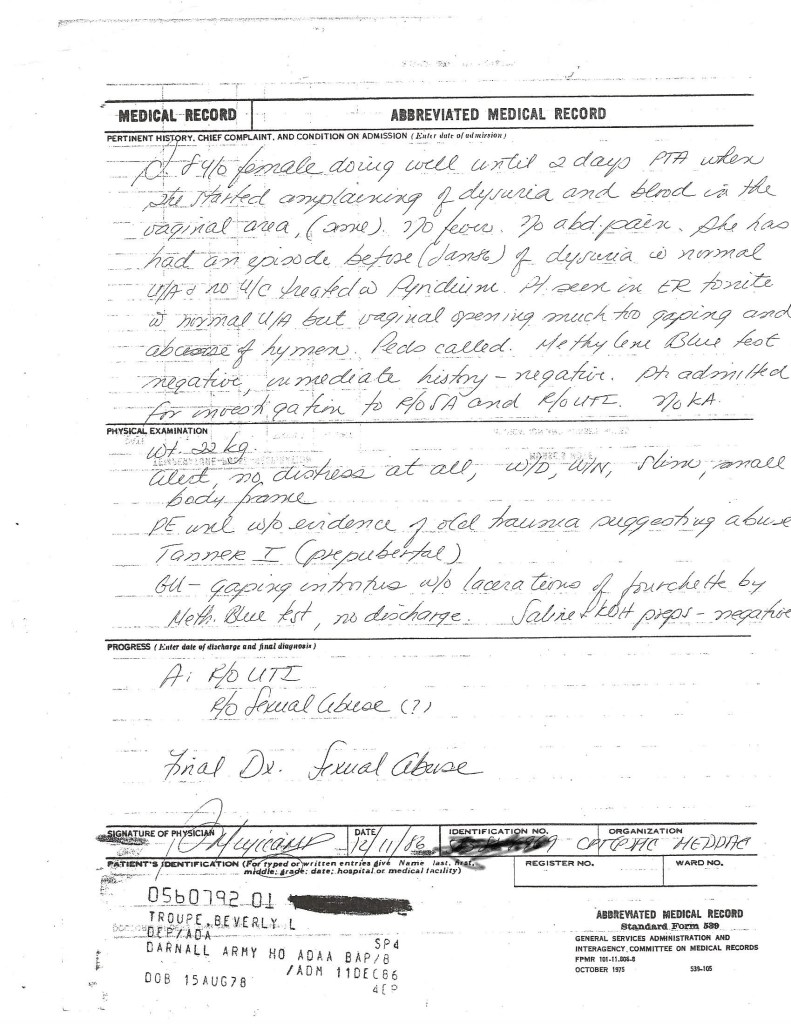 MEDICAL RECORD
ABBREVIATED MEDICAL RECORD
PERTINENT HISTORY, CHIEF COMPLAINT, AND CONDITION ON ADMISSION (Enter date of admission)
8 y/o female doing well until 2 days PTA when
she started complaining of dysuria and blood in the
vaginal area, (ome). No fever. No abd. pain. She has
had an episode before (Jan86) of dysuria c normal
U/A & no U/C treated c Pyridium. Pt seen in ER tonite
c normal U/A but vaginal opening much too gaping and
abcense of hymen. Peds called. Methylene Blue test
negative, immediate history - negative. Pt admitted
for investigation to R/O SA and R/O UTI. NoKA.
PHYSICAL EXAMINATION
Wt. 22 kg.
alert, no distress at all, W/D, W/N, slim, small
body frame
PE wnl w/o evidence of old trauma suggesting abuse
Tanner I (prepubertal)
GU - gaping introitus w/o lacerations of fourchette by
Meth. Blue tst, no discharge. Saline & KOH preps - negative
PROGRESS (Enter date of discharge and final diagnosis)
A: R/O UTI
R/O Sexual Abuse (?)
Final Dx. Sexual Abuse
SIGNATURE OF PHYSICIAN
DATE
12/11/86
IDENTIFICATION NO.
ORGANIZATION
MEDDAC
PATIENT'S IDENTIFICATION (For typed or written entries give Name last, first, middle; grade; date; hospital or medical facility)
REGISTER NO.
WARD NO.
0560792 01
TROUPE, BEVERLY L
DEP/ADA SP4
DARNALL ARMY HO ADAA BAP/B
/ADM 11DEC86
DOB 15AUG78
4EP
ABBREVIATED MEDICAL RECORD
Standard Form 539
GENERAL SERVICES ADMINISTRATION AND
INTERAGENCY COMMITTEE ON MEDICAL RECORDS
FPMR 101-11.806-8
OCTOBER 1975 539-105